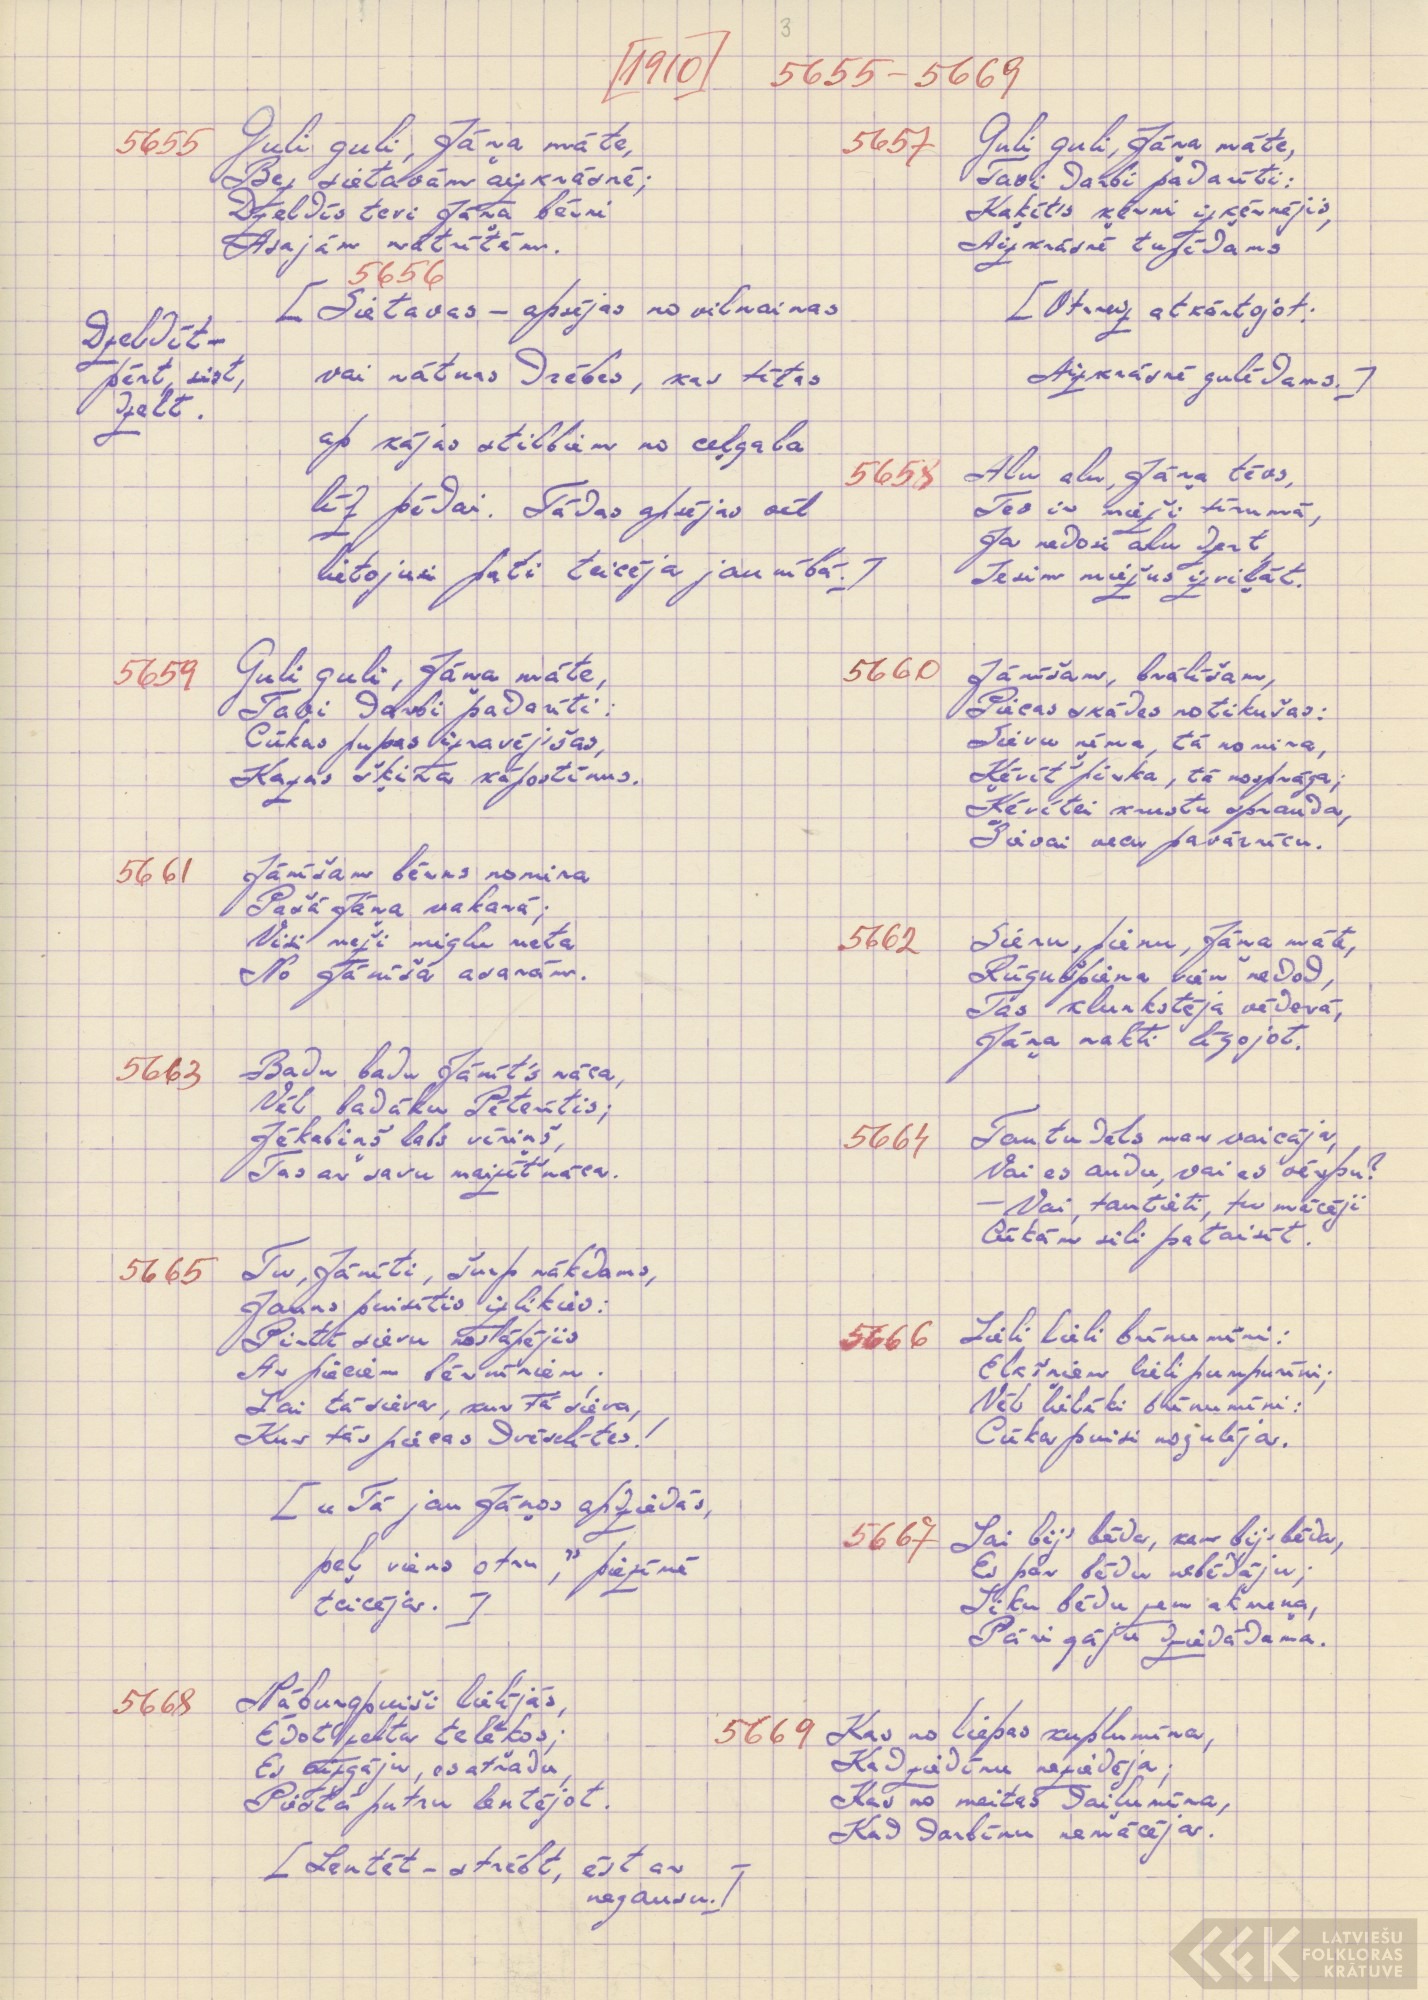 3
[1910] 5655-5669
5655 Guli guli, Jāņa māte,
Bez sietavām aizkrāsnē;
Dzeldīs tevi Jāņa bērni
Asajām nātrītēm.
5656
[Sietavas – apsējas no vilnainas
vai nātnas drēbes, kas tītas
ap kājas stilbiem no ceļgala
līdz pēdai. Tādas apsējas vēl
lietojusi pati teicēja jaunībā.]
Dzeldīt –
pērt, sist,
dzelt.
5657 Guli guli, Jāņa māte,
Tavi darbi padarīti:
Kaķīts ķērni izķērnējis,
Aizkrāsnē tupēdams
[Otrreiz atkārtojot:
Aizkrāsnē gulēdams.]
5658 Alu alu, Jāņa tēvs,
Tev ir mieži tīrumā,
Ja nedosi alu dzert,
Iesim miežus izviļāt.
5659 Guli guli, Jāņa māte,
Tavi darbi padarīti:
Cūkas pupas izravējšas,
Kazas šķina kāpostiņus.
5660 Jānīšam, brālīšam,
Piecas skādes notikušas:
Sievu ņēma, tā nomira,
Ķēvīt' pirka, tā nosprāga;
Ķēvītei krustu sprauda,
Sievai vecu pavārnīcu.
5661 Jānīšam bērns nomira
Pašā Jāņa vakarā;
Visi meži miglu meta
No Jānīša asarām.
5662 Sieru, pienu, Jāņa māte,
Rūgušpiena vien nedod,
Tas klunkstēja vēderā,
Jāņa nakti līgojot.
5663 Badu badu Jānīt's nāca,
Vēl badāku Pēterītis;
Jēkabiņš labs vīriņš,
Tas ar savu maizīt' nāca.
5664 Tautu dēls man vaicāja,
Vai es audu, vai es vērpu?
– Vai, tautieti, tu mācēji
Cūkām sili pataisīt.
5665 Tu, Jānīti, šurp nākdams,
Jauns puisītis izlikies:
Pirtī sievu noslāpējis
Ar pieciem bērniņiem.
Lai tā sieva, kur tā sieva,
Kur tās piecas dvēselītes!
[„Tā jau Jāņos apdziedās,
peļ viens otru,” piezīmē
teicēja.]
5666 Lieli lieli brīnumiņi:
Elkšņiem lieli pumpuriņi;
Vēl lielāki brīnumiņi:
Cūka puisi nogulēja.
5667 Lai bij' bēda, kam bij' bēda,
Es par bēdu nebēdāju;
Liku bēdu zem akmeņa,
Pāri gāju dziedādama.
5668 Nāburgpuiši lielījās,
Ēdot zelta telēķos;
Es aizgāju, es atradu,
Piestā putru lentējot.
[Lentēt – strēbt, ēst ar
negausu.]
5669 Kas no liepas kuplumiņa,
Kad ziediņu neziedēja;
Kas no meitas daiļumiņa,
Kad darbiņu nemācēja.
LATVIEŠU
FOLKLORAS
KRĀTUVE